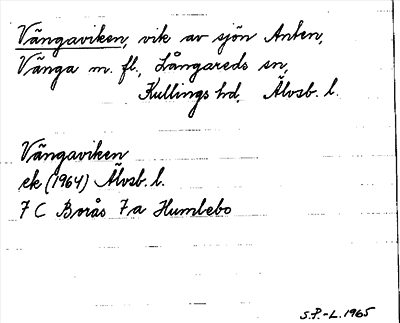 Vängaviken, vik av sjön Anten,
Vänga m. fl., Långareds sn,
Kullings hd, Älvsb. l.
Vängaviken
ek (1964) Älvsb. l.
7 C Borås 7a Humlebo
S.P.-L. 1965